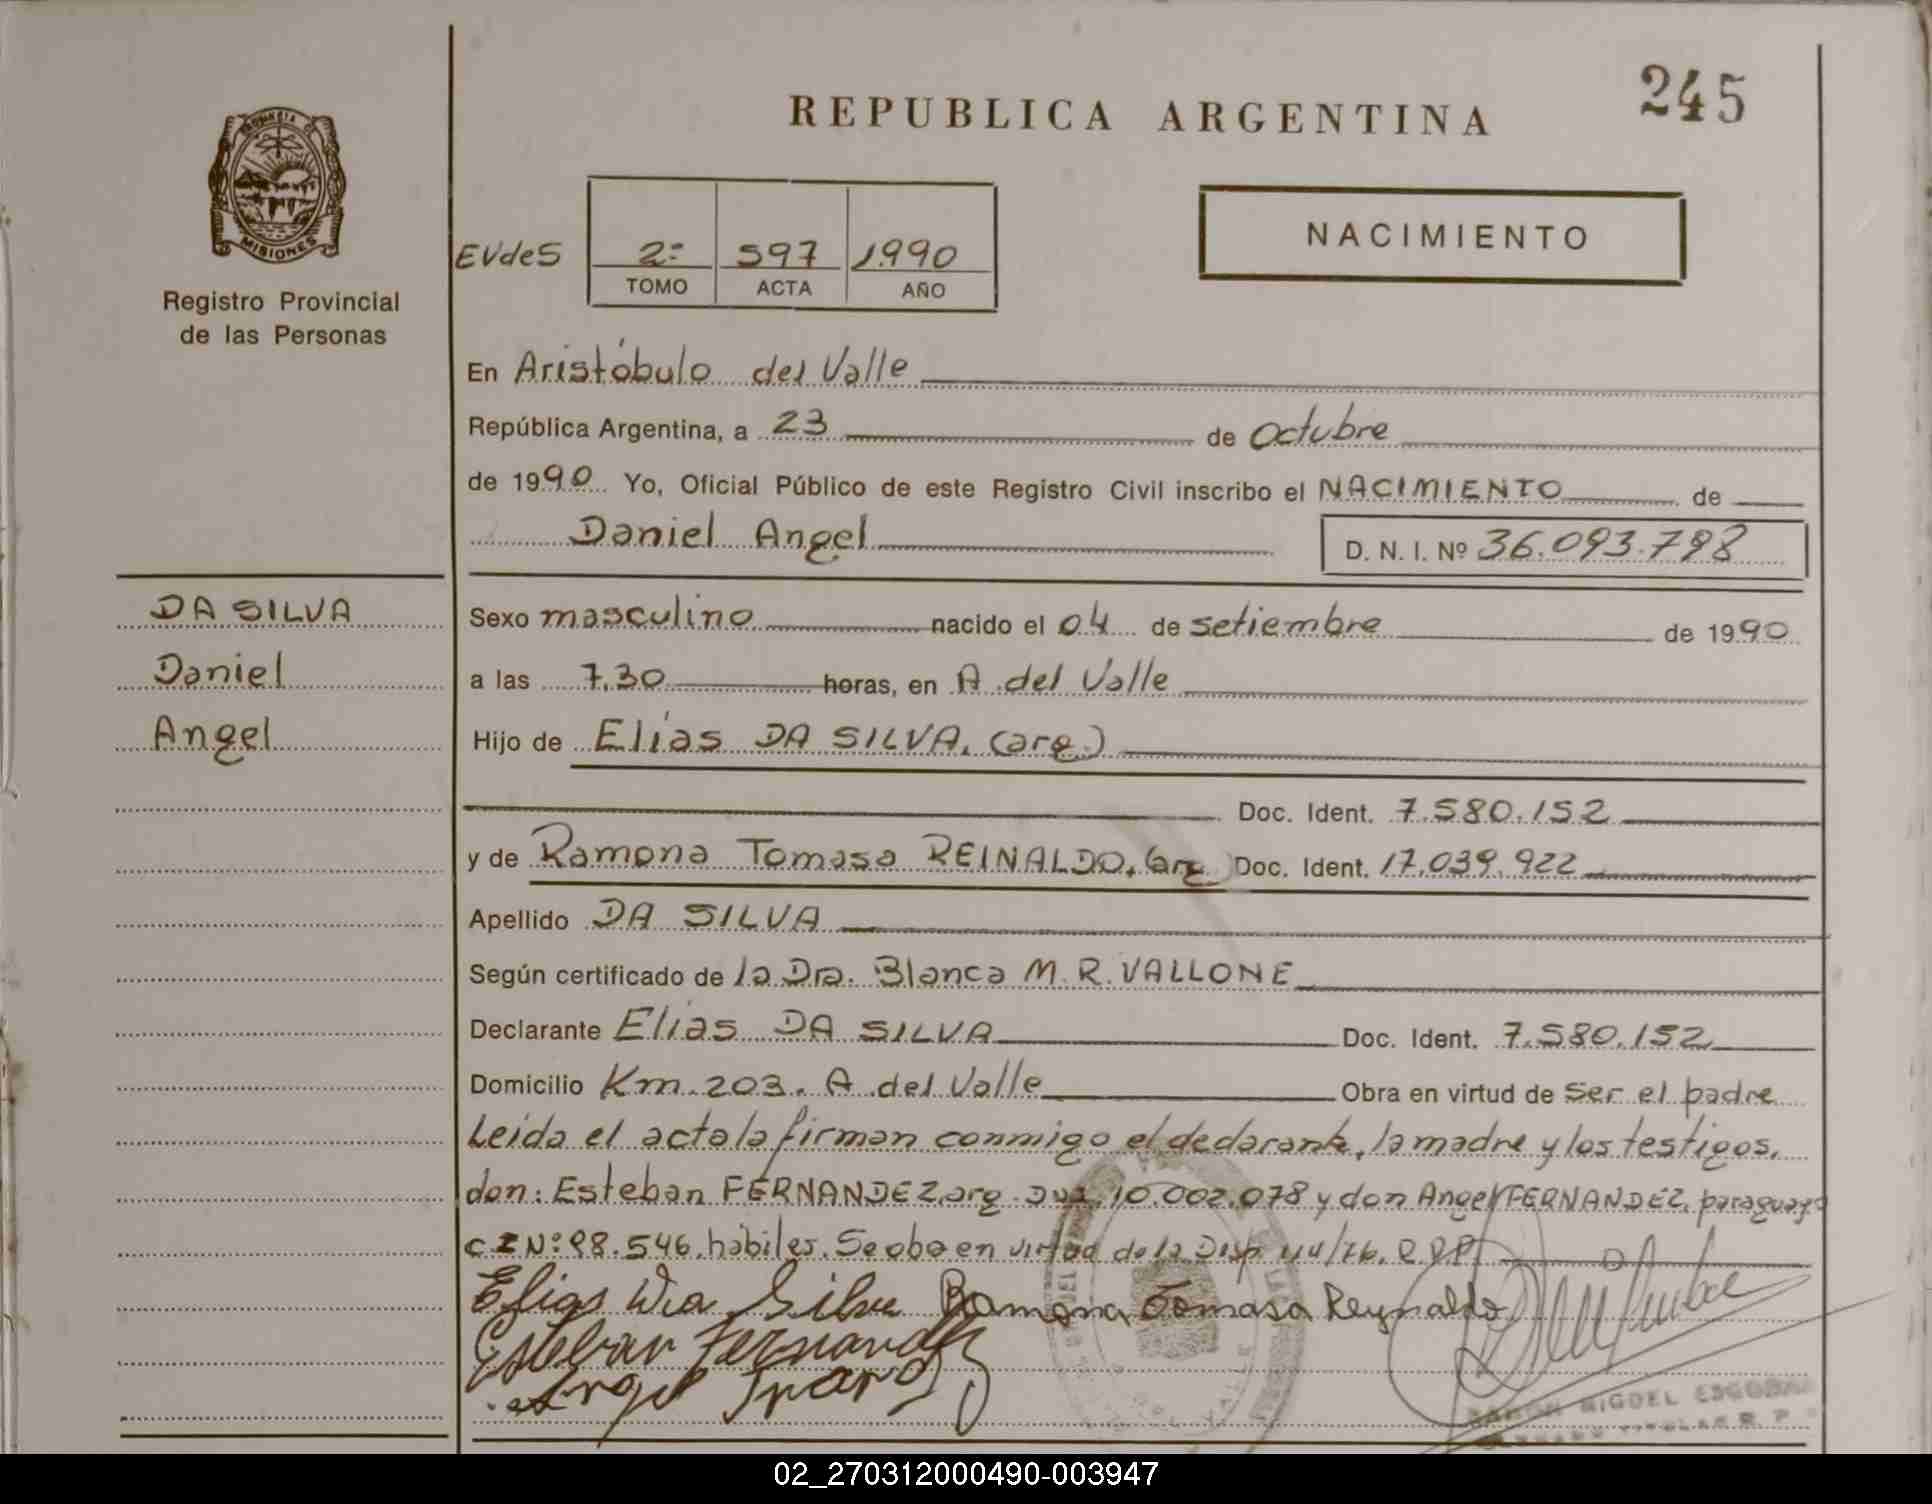 245
REPUBLICA ARGENTINA
MISIONES
Registro Provincial
de las Personas
EVdeS 2º 597 1990
TOMO ACTA AÑO
NACIMIENTO
En Aristóbulo del Valle
República Argentina, a 23 de Octubre
de 1990 Yo, Oficial Público de este Registro Civil inscribo el NACIMIENTO de
Daniel Angel
D. N. I. Nº 36.093.798
DA SILVA
Daniel
Angel
Sexo masculino nacido el 04 de setiembre de 1990
a las 7,30 horas, en A del Valle
Hijo de Elías DA SILVA, (arg.)
Doc. Ident. 7.580.152
y de Ramona Tomasa REINALDO, (arg Doc. Ident. 17.039.922
Apellido DA SILVA
Según certificado de la Dra. Blanca M. R. VALLONE
Declarante Elías DA SILVA Doc. Ident. 7.580.152
Domicilio Km. 203. A del Valle Obra en virtud de ser el padre
Leída el acta la firman conmigo el declarante, la madre y los testigos,
don: Esteban FERNANDEZ, arg. 10.002.078 y don Angel FERNANDEZ, paraguayo
CI Nº 98.546, hábiles. Se obra en virtud de la Disp. 44/76. R.P.P.
Elias Da Silva Ramona Tomasa Reynaldo
Esteban Fernandez
Angel
RAMON MIGUEL ESCOBAR
02_270312000490-003947